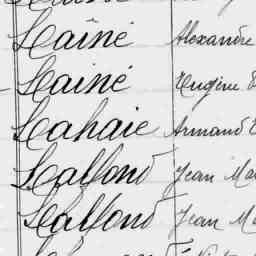 Laîné Alexandre
Lainé Eugène
Lahaie Armand
Lalfond Jean
Lalfond Jean